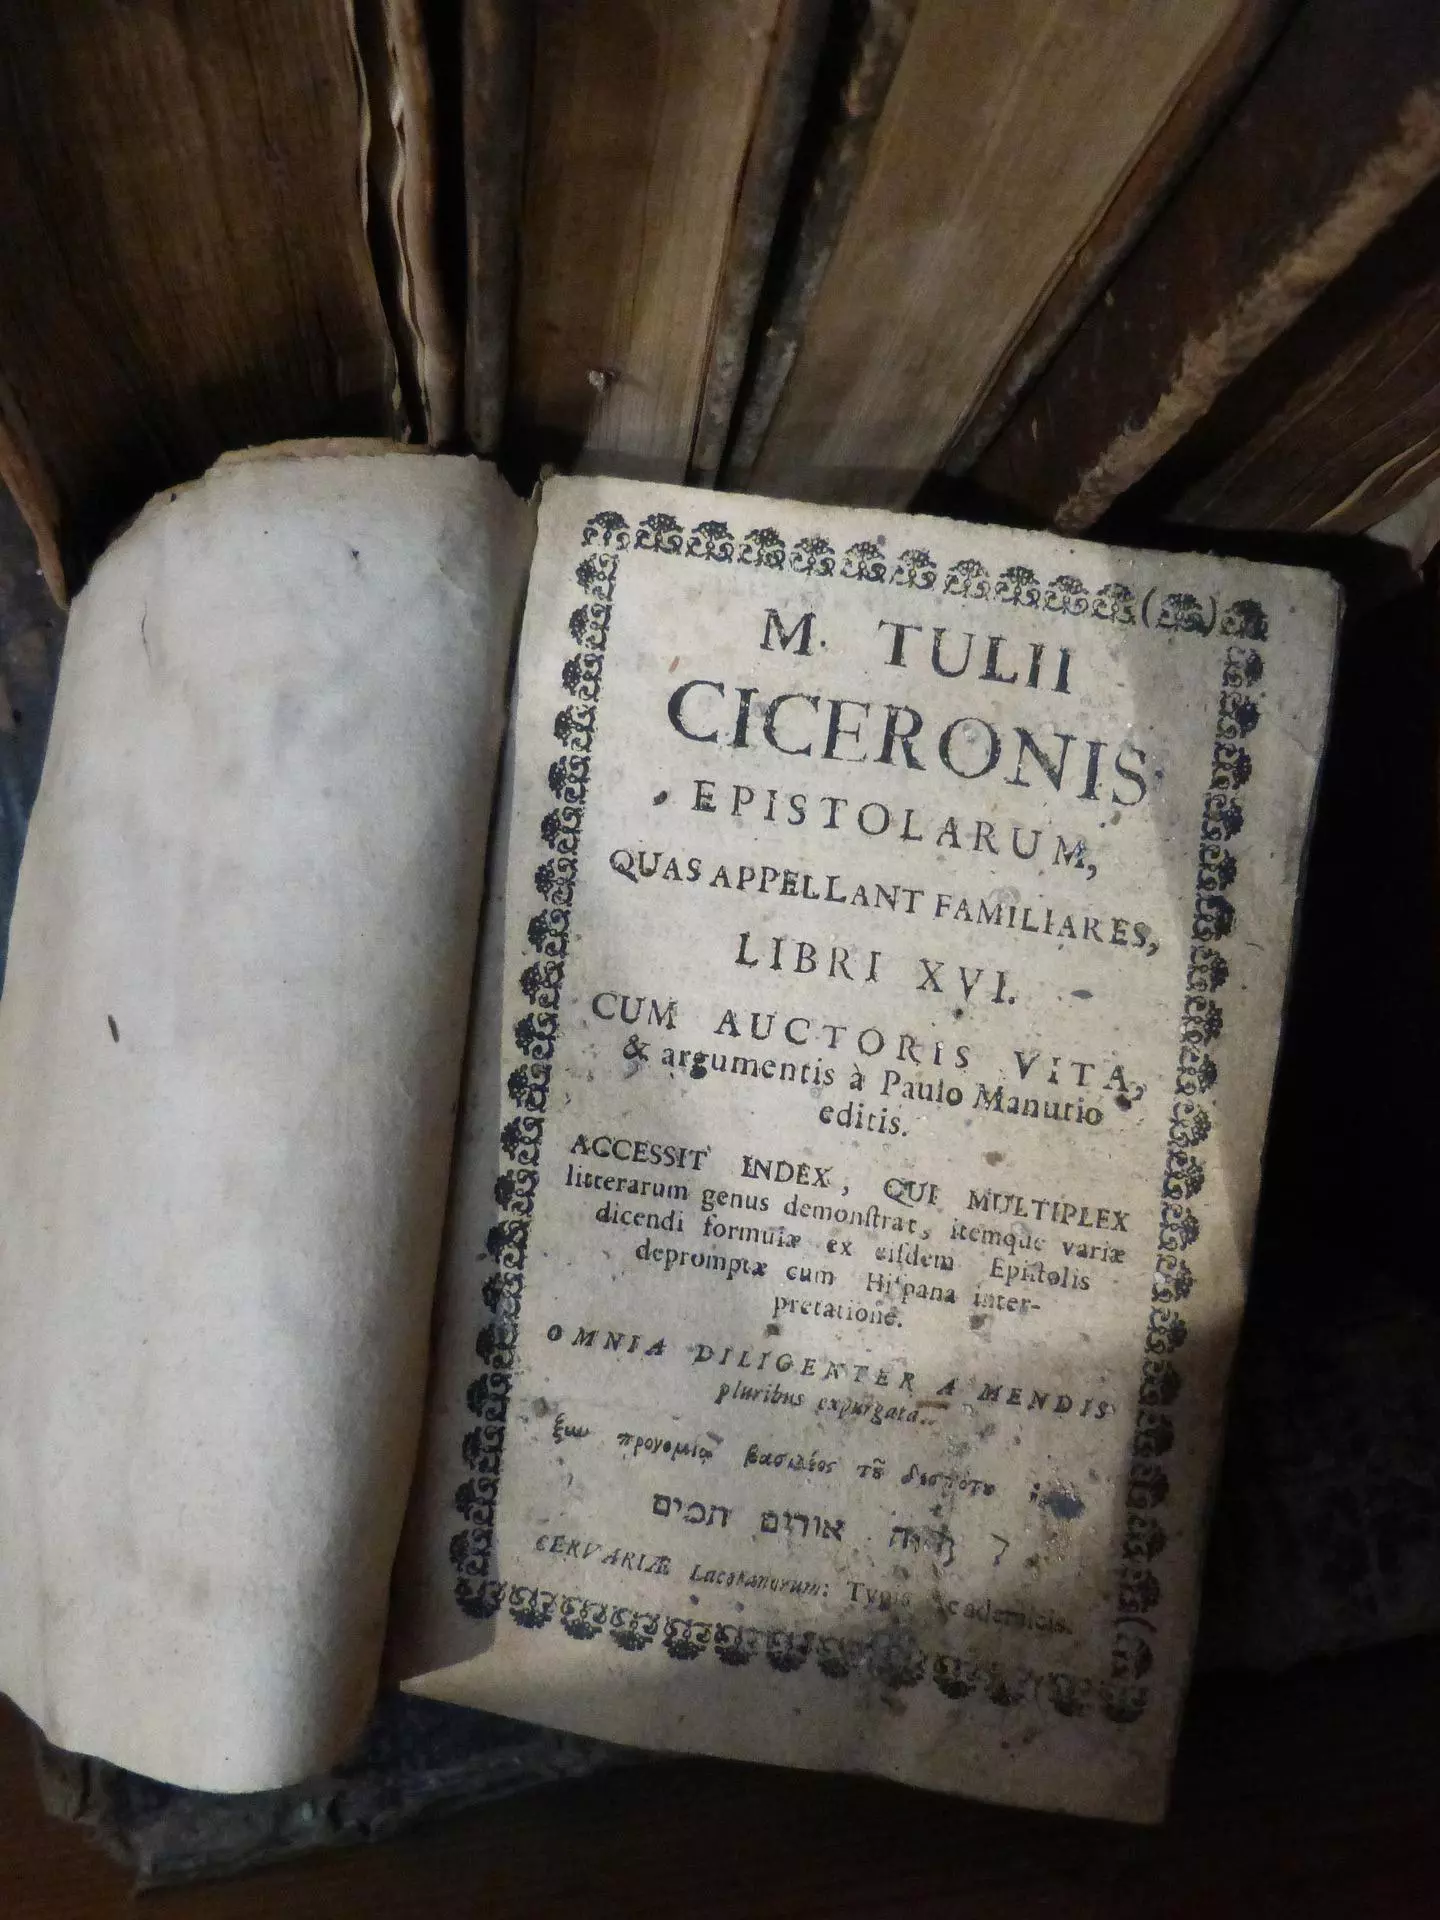 M. TULII
CICERONIS
EPISTOLARUM,
QUAS APPELLANT FAMILIARES,
LIBRI XVI.
CUM AUCTORIS VITA,
& argumentis à Paulo Manutio
editis.
ACCESSIT INDEX, QUI MULTIPLEX
litterarum genus demonſtrat, itemque variæ
dicendi formulæ ex eiſdem Epiſtolis
depromptæ cum Hiſpana inter-
pretatione.
OMNIA DILIGENTER A MENDIS
pluribus expurgata.
ξων προνομία βασιλέος τȣ͂
אורים
CERVARIÆ Lacetanorum: Typis Academicis.